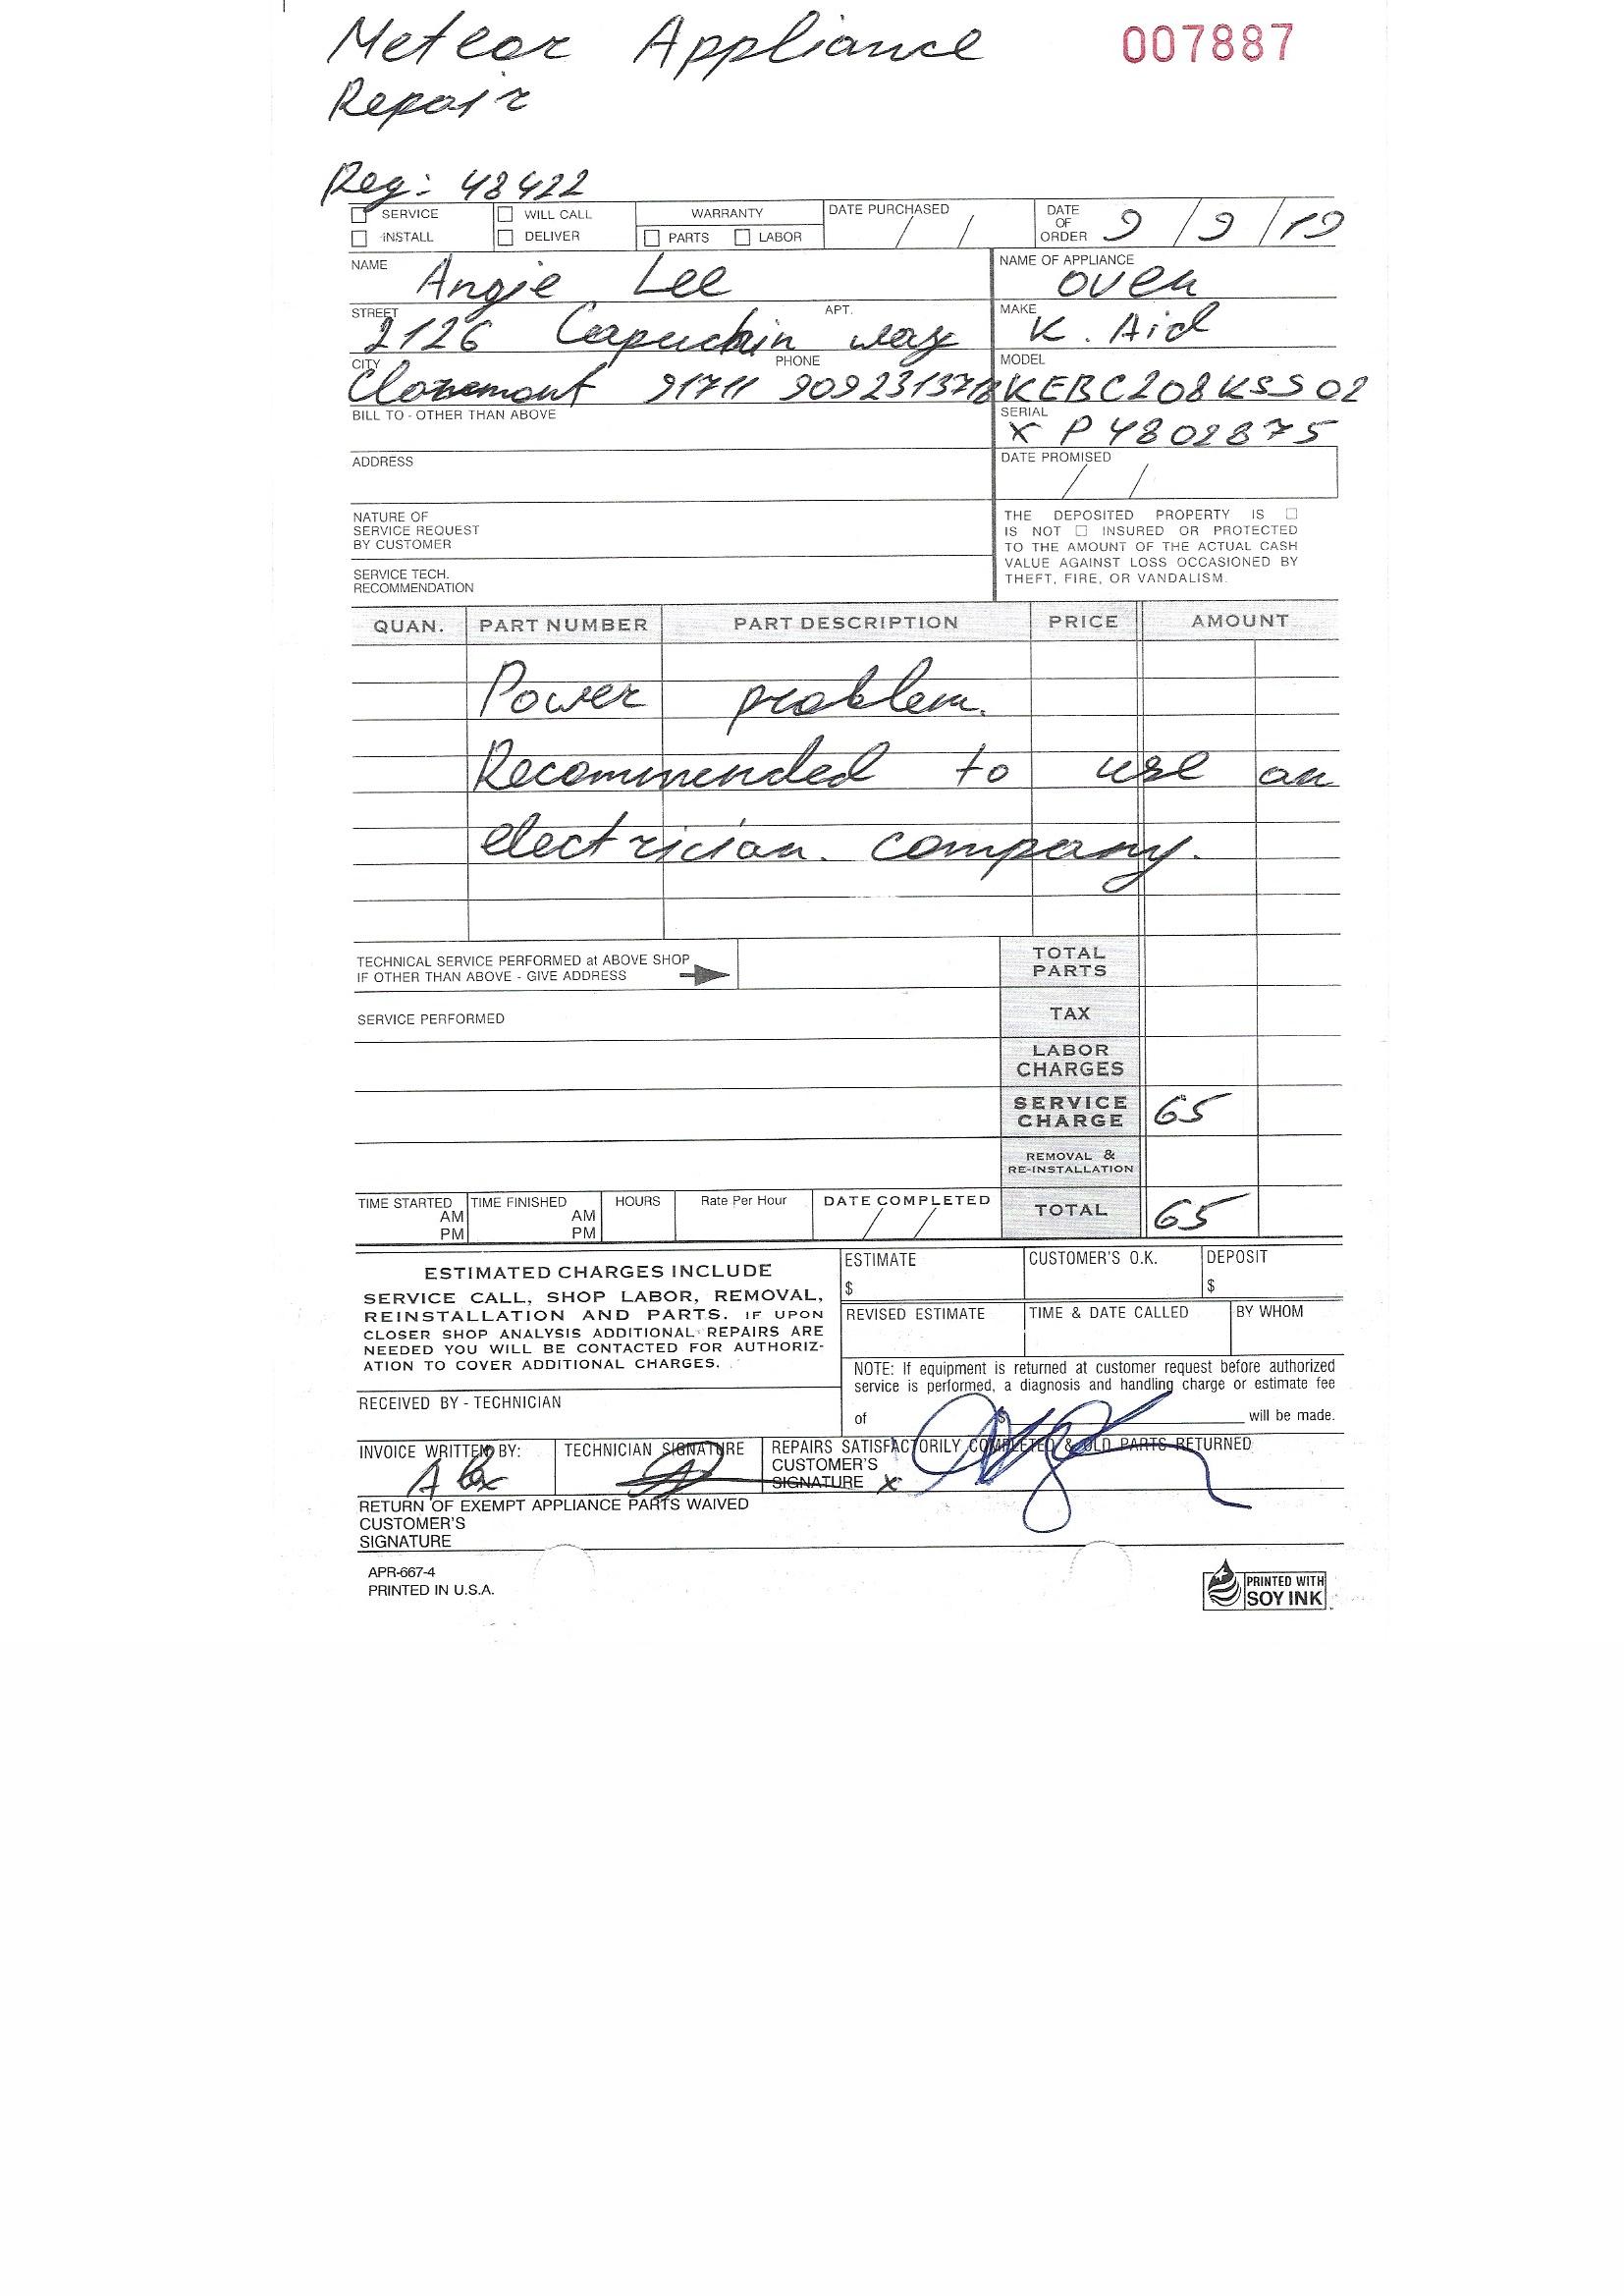 Meteor Appliance 007887
Repair
Reg: 48422
SERVICE WILL CALL WARRANTY DATE PURCHASED / / DATE OF ORDER 9/9/19
INSTALL DELIVER PARTS LABOR
NAME Angie Lee NAME OF APPLIANCE oven
STREET 2126 Capuchin way APT. MAKE K. Aid
CITY Claremont 91711 PHONE MODEL KEBC208KSS02
BILL TO - OTHER THAN ABOVE SERIAL XP4802875
ADDRESS DATE PROMISED / /
NATURE OF
SERVICE REQUEST
BY CUSTOMER
SERVICE TECH.
RECOMMENDATION
THE DEPOSITED PROPERTY IS
IS NOT INSURED OR PROTECTED
TO THE AMOUNT OF THE ACTUAL CASH
VALUE AGAINST LOSS OCCASIONED BY
THEFT, FIRE, OR VANDALISM.
QUAN. PART NUMBER PART DESCRIPTION PRICE AMOUNT
Power problem.
Recommended to use an
electrician. company.
TECHNICAL SERVICE PERFORMED at ABOVE SHOP
IF OTHER THAN ABOVE - GIVE ADDRESS
TOTAL
PARTS
SERVICE PERFORMED TAX
LABOR
CHARGES
SERVICE
CHARGE 65
REMOVAL &
RE-INSTALLATION
TIME STARTED AM PM TIME FINISHED AM PM HOURS Rate Per Hour DATE COMPLETED / / TOTAL 65
ESTIMATED CHARGES INCLUDE
SERVICE CALL, SHOP LABOR, REMOVAL,
REINSTALLATION AND PARTS. IF UPON
CLOSER SHOP ANALYSIS ADDITIONAL REPAIRS ARE
NEEDED YOU WILL BE CONTACTED FOR AUTHORIZ-
ATION TO COVER ADDITIONAL CHARGES.
ESTIMATE $ CUSTOMER'S O.K. DEPOSIT $
REVISED ESTIMATE TIME & DATE CALLED BY WHOM
NOTE: If equipment is returned at customer request before authorized
service is performed, a diagnosis and handling charge or estimate fee
of $ will be made.
RECEIVED BY - TECHNICIAN
INVOICE WRITTEN BY: Alex TECHNICIAN SIGNATURE REPAIRS SATISFACTORILY COMPLETED & OLD PARTS RETURNED
CUSTOMER'S
SIGNATURE X
RETURN OF EXEMPT APPLIANCE PARTS WAIVED
CUSTOMER'S
SIGNATURE
APR-667-4
PRINTED IN U.S.A.
PRINTED WITH
SOY INK